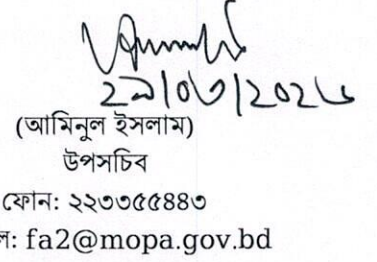 ২৯/০৩/২০২৬
(আমিনুল ইসলাম)
উপসচিব
ফোন: ২২৩৩৫৫৪৪৩
ল: fa2@mopa.gov.bd